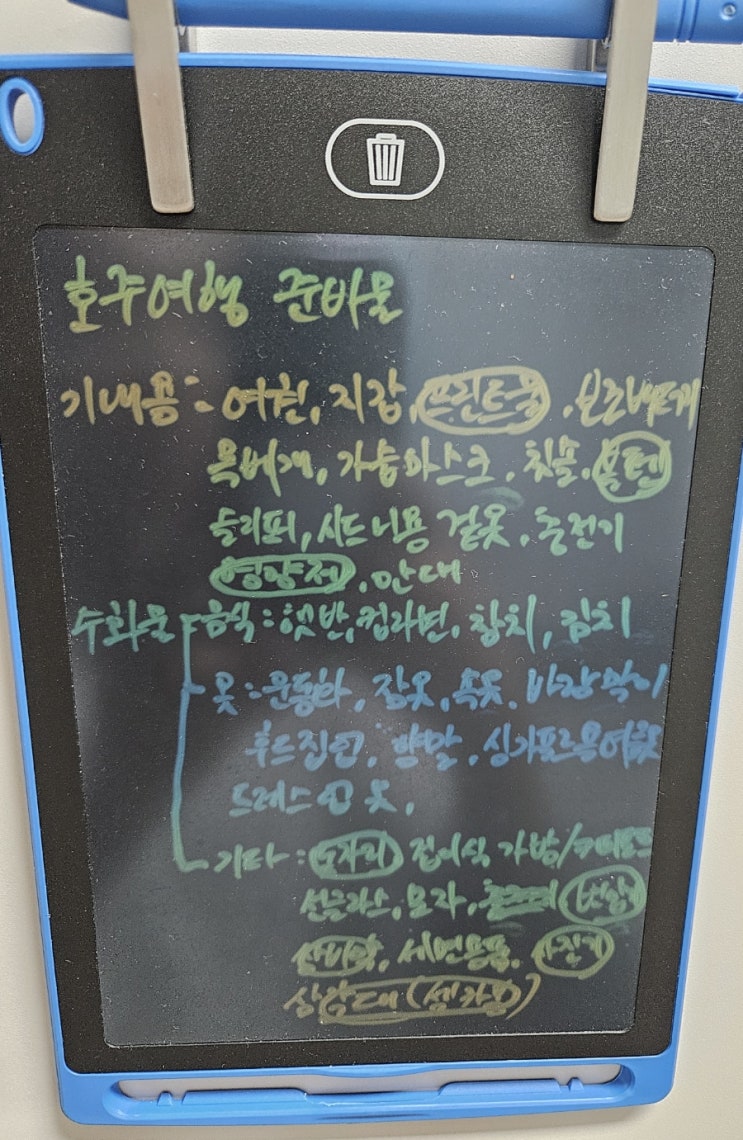 호주여행 준비물
기내용 : 여권, 지갑, 프린트물, 보조배터리
목베개, 가습마스크, 칫솔, 볼펜
슬리퍼, 시드니용 겉옷, 충전기
영양제, 안대
수화물 음식 : 햇반, 컵라면, 참치, 김치
옷 : 운동화, 잠옷, 속옷, 바람막이
후드집업, 양말, 싱가포르용 여름옷
드레스인 옷,
기타 : 돗자리 접이식 가방/
선글라스, 모자,
선비약, 세면용품,
(셀카용)